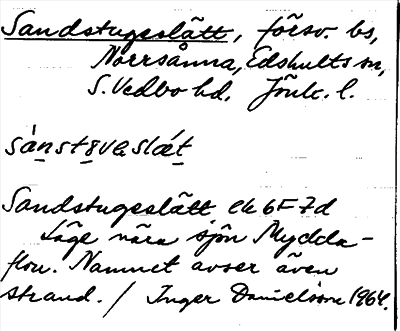 Sandstugeslätt, försv. bs,
Norrsånna, Edshults sn,
S. Vedbo hd. Jönk. l.
sánstɞvɐslǽt
Sandstugeslätt ek 6F7d
Läge nära sjön Mydda-
flon. Namnet avser även
strand. / Inger Danielsson 1964.